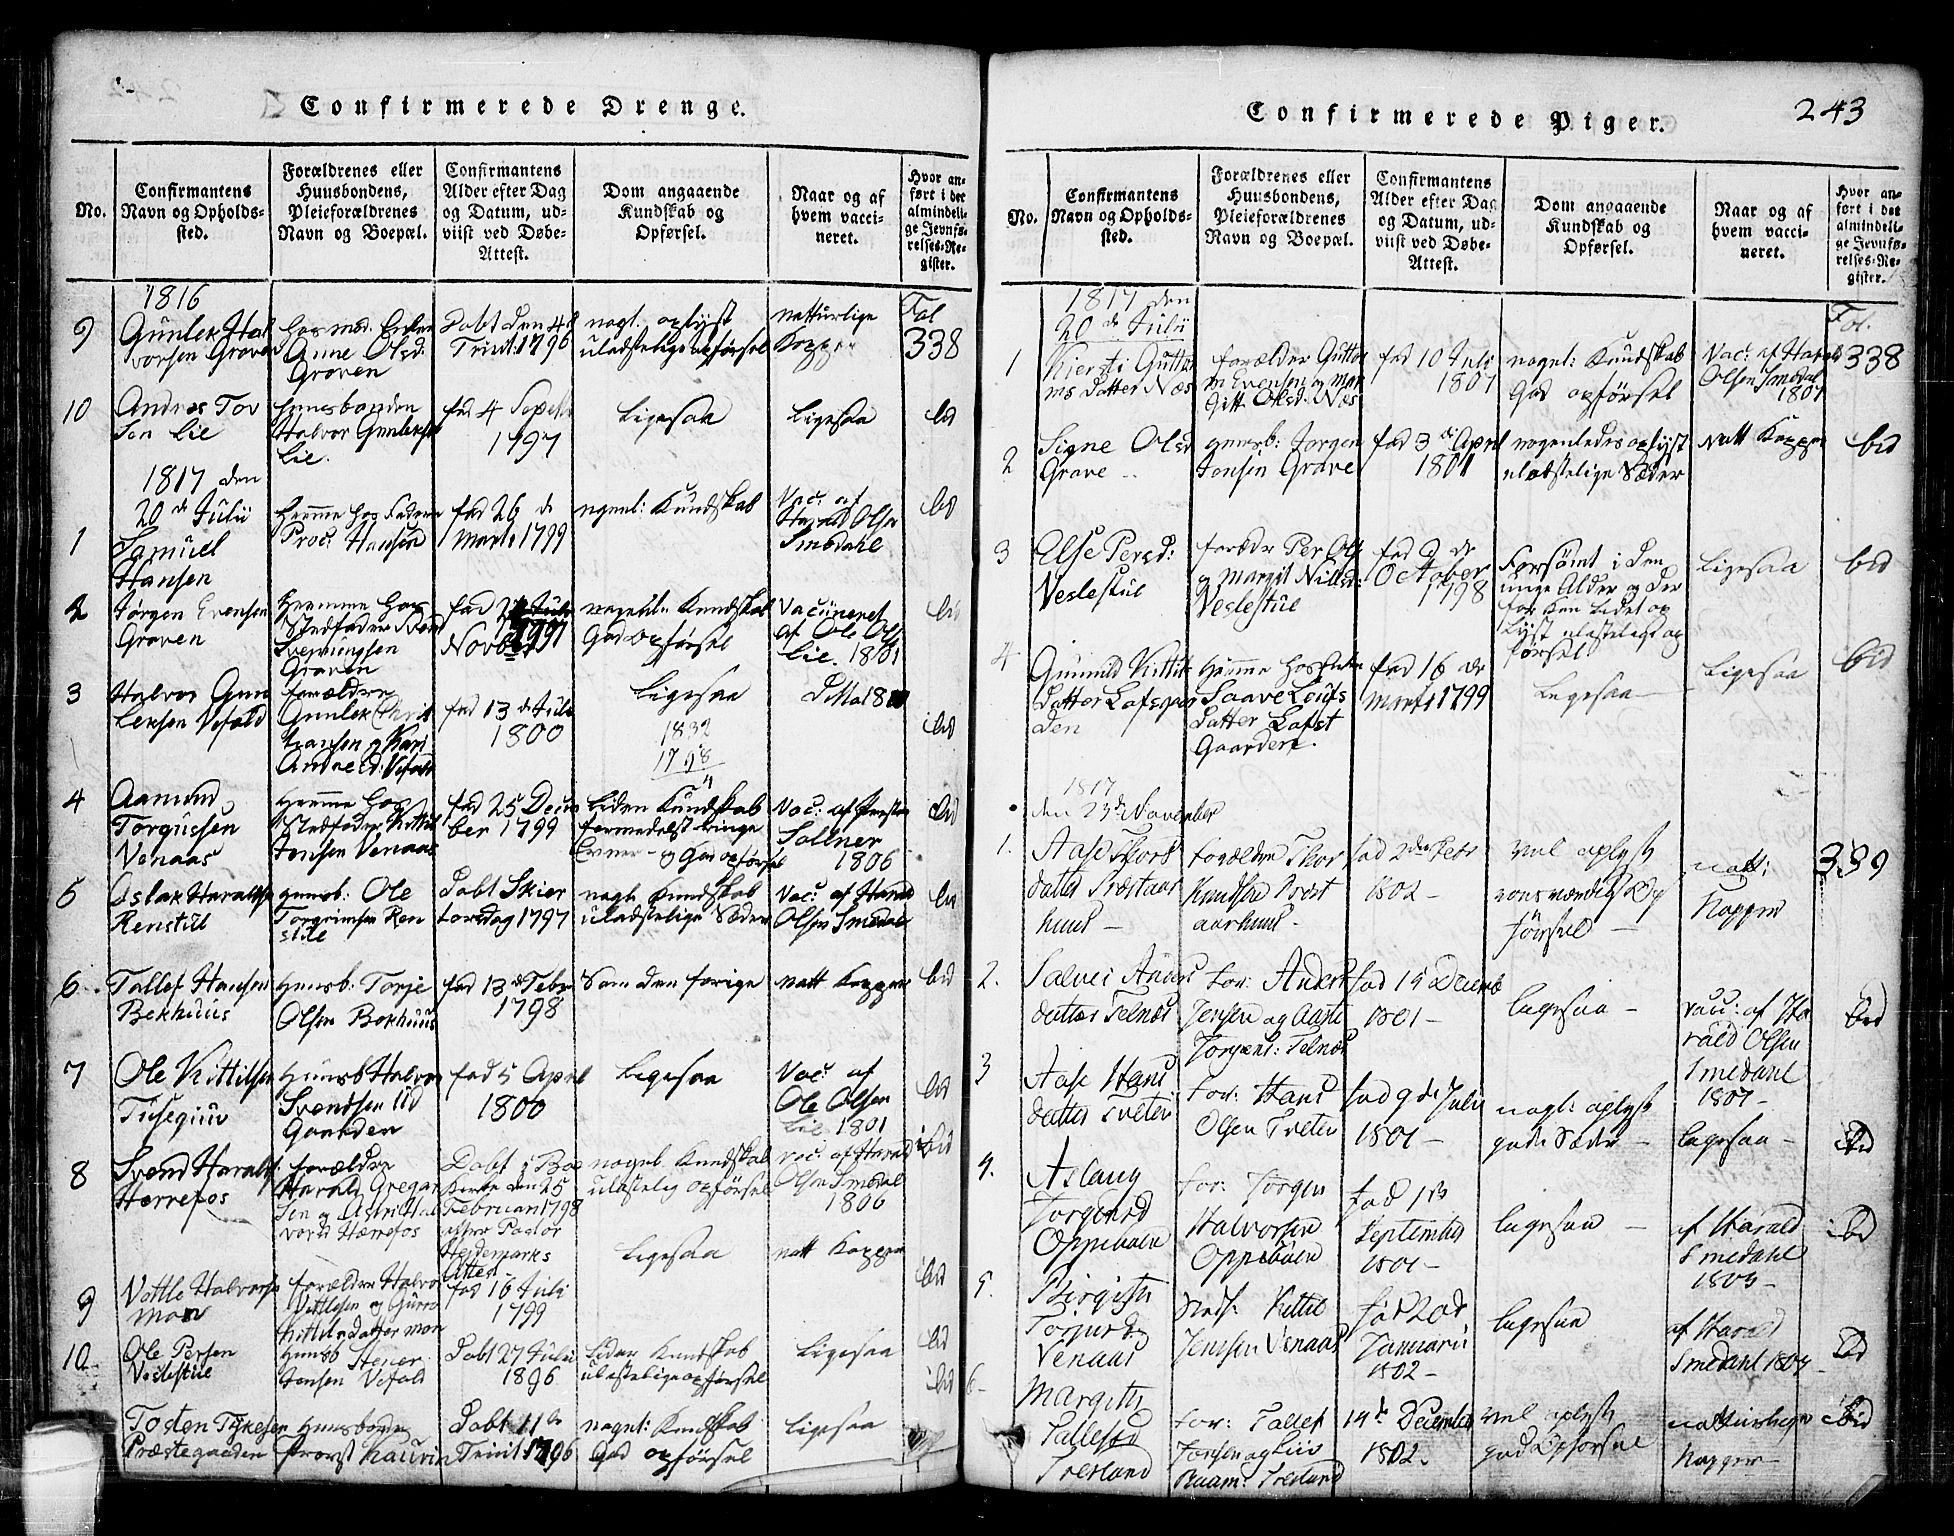 Confirmerede Drenge.
No.
Confirmantens
Navn og Opholds-
sted.
Forældrenes eller
Huusbondens,
Pleieforældrenes
Navn og Boepæl.
Confirmantens
Alder efter Dag
og Datum, ud-
viist ved Døbe-
Attest.
Dom angaaende
Kundskab og
Opførsel.
Naar og af
hvem vacci-
neret.
Hvor an-
ført i det
almindeli-
ge Jevnfø-
relses-Re-
gister.
1816
9
Gunlek Hal
vorsen Graven
hos mod. Enken
Anne Olsd.
Graven
Døbt den 4d
Trinit: 1796
nogl. oplyst
ulastelige opførsel
natturlige
Kopper
Fol
338
10
Andres Tov
sen Lie
Huusbonden
Halvor Gunleksen
Lie.
fød 4 Septb
1797
Ligesaa
Ligesaa
ibid
1817 den
20 de Julii
1
Samuel
Hansen
Hiemme hos Faderen
Proc: Hansen
fød 26 de
Marts 1799
nognl: Kundskab
Vac: af
Harald Olsen
Smedahl
ibd
2
Jørgen Evensen
Graven
Hiemme hos
Stedfader Svend
Svenningsen
Graven
Novber
1797
nogenl: Kundskab
God opførsel
Vaccineret
af Ole Olsen
Lie. 1801
ibid
3
Halvor Gun
leksen Vefald
forældre
Gunlek Christ
iansen og Kari
Andresd: Vefald
fød 13 de Julii
1800
Ligesaa
1832
1798
4
ibid
4
Aamund
Torgussen
Venaas
Hiemme hos
Stedfader Kittil
Jensen Venaas
fød 25 Decem
ber 1799
Liden Kundskab
formedelst ringe
Evner - og God opførsel
Vac: af Presten
Sollner
1806
ibid
5
Aslak Haraldsen
Renstul
Huusb: Ole
Torgrimsen Ren
stul
Døbt Skier
torsdag 1797
nogl. Kundskab
ulastelige Sæder
Vac: af Harald
Olsen Smedal
ibid
6
Tallef Hansen
Bekhuus
Huusb. Torje
Olsen Bekhuus
fød 13 d Febr
1798
Som den forige
natt Kopper
ibid
7
Ole Kittilsen
Tusegiuv
Huusb Halvor
Svendsen Ud
Gaarden
fød 5 April
1800
Ligesaa
Vac: af
Ole Olsen
Lie 1801
ibid
8
Svend Haralds:
Herrefos
forældre
Harald Gregar
sen og Astri Hal
vorsd Herrefos
Døbt i Boe
Kirke den 25
Februari 1798
efter Pastor
Heidemarks
Attest
nogel Kundskab
ulastelig opførsel
vac: af Harald
Olsen Smedal
1806
ibid
9
Vettle Halvorsen
Moen
forældre Halvor
Vettlesen og Gurro
Kittilsdatter Moen
fød 16 Juli
1799
Ligesaa
natt Kopper
ibid
10
Ole Persen
Veslestul
Huusb
Stener
Jensen Vefald
Døbt 27 Julii
1896
Liden Kundskab
ulastelige opførsel
Ligesaa
ibid
Tosten Tykesen
Præstegaarden
Huusbonde
Provst Kaurin
Døbt 11te
Trinit 1796
nognl: Kundskab
God opførsel
Ligesaa
ibid
Confirmerede Piger.
243
No.
Confirmantens
Navn og Opholds-
sted.
Forældrenes eller
Huusbondens,
Pleieforældrenes
Navn og Boepæl.
Confirmantens
Alder efter Dag
og Datum, ud-
viist ved Døbe-
Attest.
Dom angaaende
Kundskab og
Opførsel.
Naar og af
hvem vacci-
neret.
Hvor an-
ført i det
almindeli-
ge Jevnfø-
relses-Re-
gister.
1817 den
20 de Julii
1
Kiersti Gutter
ms datter Næs
forælder Gutter
m Evensen og Mar
gitt Olsd: Næs
fød 10 Juli
1801
nognl: Kundskab
God opførsel
Vac: af Harald
Olsen Smedal
1801
Fol.
338
2
Signe Olsd
Grave
Huusb: Jørgen
Jensen Grave
fød 3 di April
1801
nogenledes oplyst
ulastelige Sæder
Natt Kopper
ibid
3
Else Persd:
Veslestul
forældr Per Ols
og Margit Nilsd:
Veslestul
fød 2 de
October
1798
Forsømt i den
unge Alder og der
for kun lidet op
lyst ulastelig op
førsel
Ligesaa
ibid
4
Gunnild Kittils
datter Loftsgaar
den
Hiemme hos
Saave Leufs
datter Loft
Gaarden.
fød 16 de
Marts 1799
Ligesaa
Ligesaa
ibid
1817
den 23de November
1.
Aase Thors
datter Præstaar
huus -
forældre Thor
Knudsen Præst
aarhuus -
fød 2den Febr
1802 -
vel oplyst
roesværdig Op
førsel -
natt:
Kopper
339
2.
Sølvei Anders
datter Telnæs
for: Anders
Jensen og Aaste
Jørgens: Telnæs
fød 15 Decemb
1801 -
ligesaa -
vac: af Ha
rald Olsen
Smedahl
1801 -
ibid
3
Aase Hans
datter Tveten
for: Hans
Olsen Tveten
fød 9 de Julii
1801 -
nogl: oplyst
gode Sæder -
ligesaa -
ibid
4.
Aslaug
Jørgensd
Oppebøen
for: Jørgen
Halvorsen
Oppebøen
fød 1ste
September
1801 -
ligesaa -
af Harald
Smedahl
1803 -
ibid
5.
Birgith
Torjusd
Venaas
Stedf: Kittil
Jensen Venaas
fød 20 d
Januarii
1802 -
ligesaa
af Harald
Smedahl 1804 -
ibid
6 -
Margith
Tallefsd
Tresland
for: Tallef
Jonsen og Liv
Raam: Tresland
14de December
1802 -
vel oplyst
god Opførsel
natturlige
Kopper -
ibid